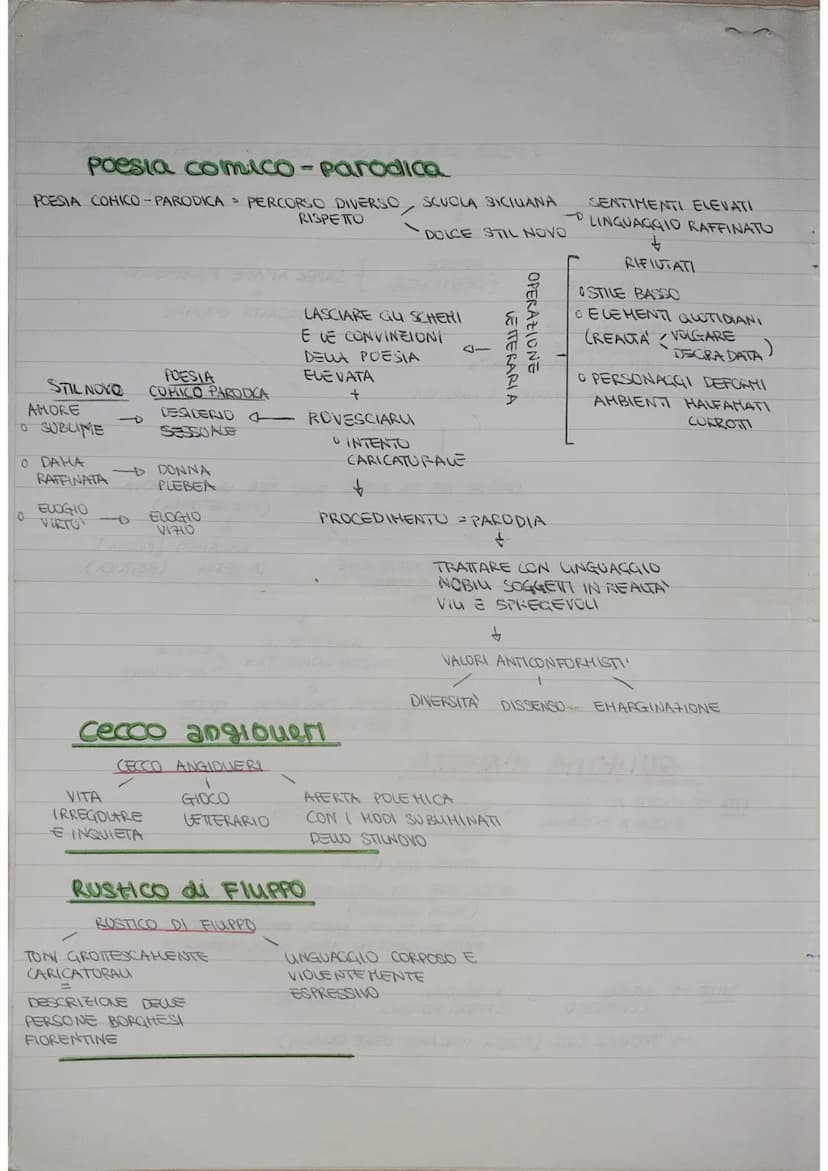 poesia comico-parodica
POESIA COMICO-PARODICA = PERCORSO DIVERSO
RISPETTO
SCUOLA SICILIANA
DOLCE STIL NOVO
SENTIMENTI ELEVATI
LINGUAGGIO RAFFINATO
RIFIUTATI
o STILE BASSO
o ELEMENTI QUOTIDIANI
(REALTÀ < VOLGARE
DEGRADATA)
o PERSONAGGI DEFORMI
AMBIENTI MALFAMATI
CORROTTI
OPERAZIONE
LETTERARIA
LASCIARE GLI SCHEMI
E LE CONVINZIONI
DELLA POESIA
ELEVATA
+
ROVESCIARLI
o INTENTO
CARICATURALE
STIL NOVO
POESIA
COMICO PARODICA
AMORE
o SUBLIME
DESIDERIO
SESSUALE
o DAMA
RAFFINATA
DONNA
PLEBEA
o ELOGIO
VIRTU'
ELOGIO
VIZIO
PROCEDIMENTO = PARODIA
TRATTARE CON LINGUAGGIO
NOBILI SOGGETTI IN REALTA'
VILI E SPREGEVOLI
VALORI ANTICONFORMISTI
DIVERSITA' DISSENSO EMARGINAZIONE
cecco angiolieri
CECCO ANGIOLIERI
VITA
IRREGOLARE
E INQUIETA
GIOCO
LETTERARIO
APERTA POLEMICA
CON I MODI SUBLIMINATI
DELLO STILNOVO
RUSTICO di FILIPPO
RUSTICO DI FILIPPO
TONI GROTTESCAMENTE
CARICATURALI
=
DESCRIZIONE DELLE
PERSONE BORGHESI
FIORENTINE
LINGUAGGIO CORPOSO E
VIOLENTEMENTE
ESPRESSIVO